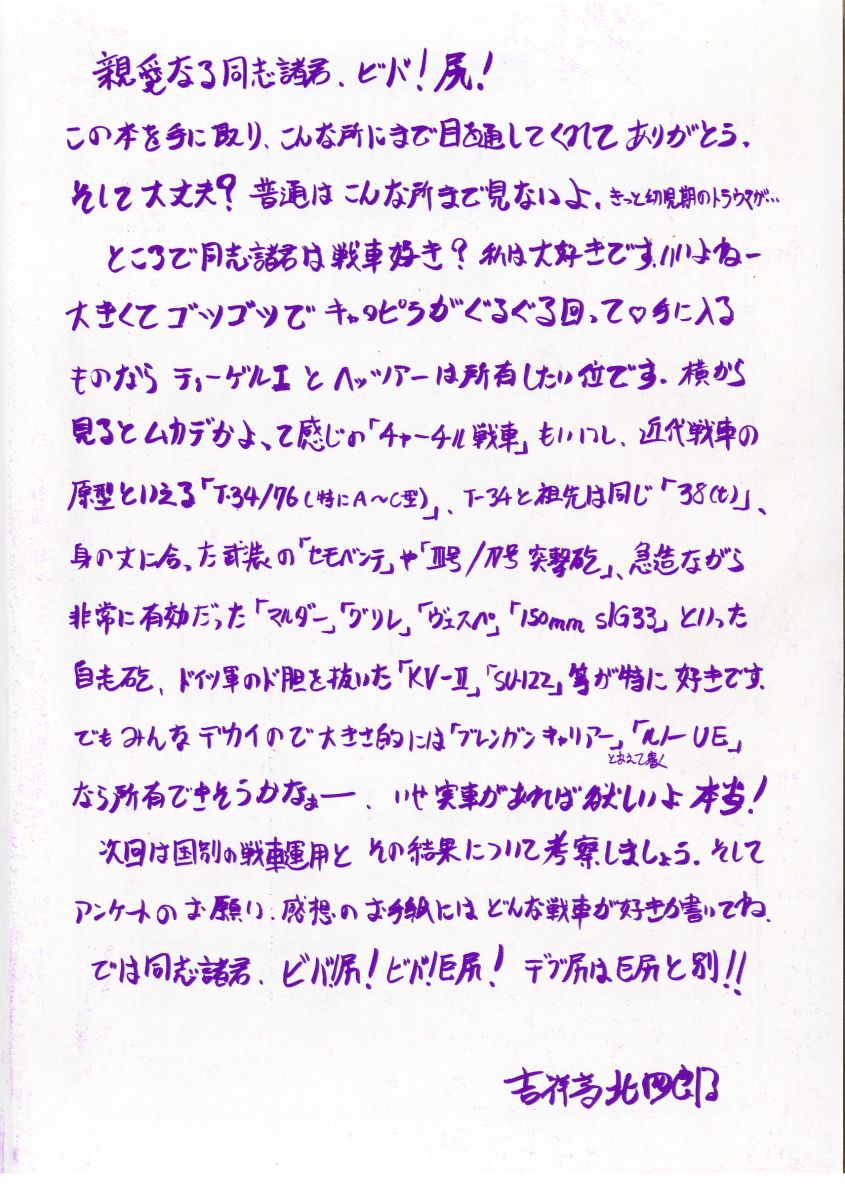 親愛なる同志諸君、ビバ!尻!
この本を手に取り、こんな所にまで目を通してくれてありがとう。
そして大丈夫?普通はこんな所まで見ないよ。きっと幼児期のトラウマが…
ところで同志諸君は戦車好き?私は大好きです。いいよねー
大きくてゴツゴツでキャタピラがぐるぐる回って♡手に入る
ものならティーゲルⅠとヘッツァーは所有したい位です。横から
見るとムカデかよ、って感じの「チャーチル戦車」もいいし、近代戦車の
原型といえる「T-34/76(特にA～C型)」、T-34と祖先は同じ「38(t)」、
身の丈に合った武装の「セモベンテ」や「Ⅲ号/Ⅳ号突撃砲」、急造ながら
非常に有効だった「マルダー」「グリレ」「ヴェスペ」「150mm sIG33」といった
自走砲、ドイツ軍のド胆を抜いた「KV-Ⅱ」「SU-122」等が特に好きです。
でもみんなデカイので大きさ的には「ブレンガンキャリアー」「ルノーUE」
とあえて書く
なら所有できそうかなぁー、いや実車があれば欲しいよ本当!
次回は国別の戦車運用とその結果について考察しましょう。そして
アンケートのお願い、感想のお手紙にはどんな戦車が好きか書いてね。
では同志諸君、ビバ!尻!ビバ!巨尻!デブ尻は巨尻と別!!
吉祥寺北四郎